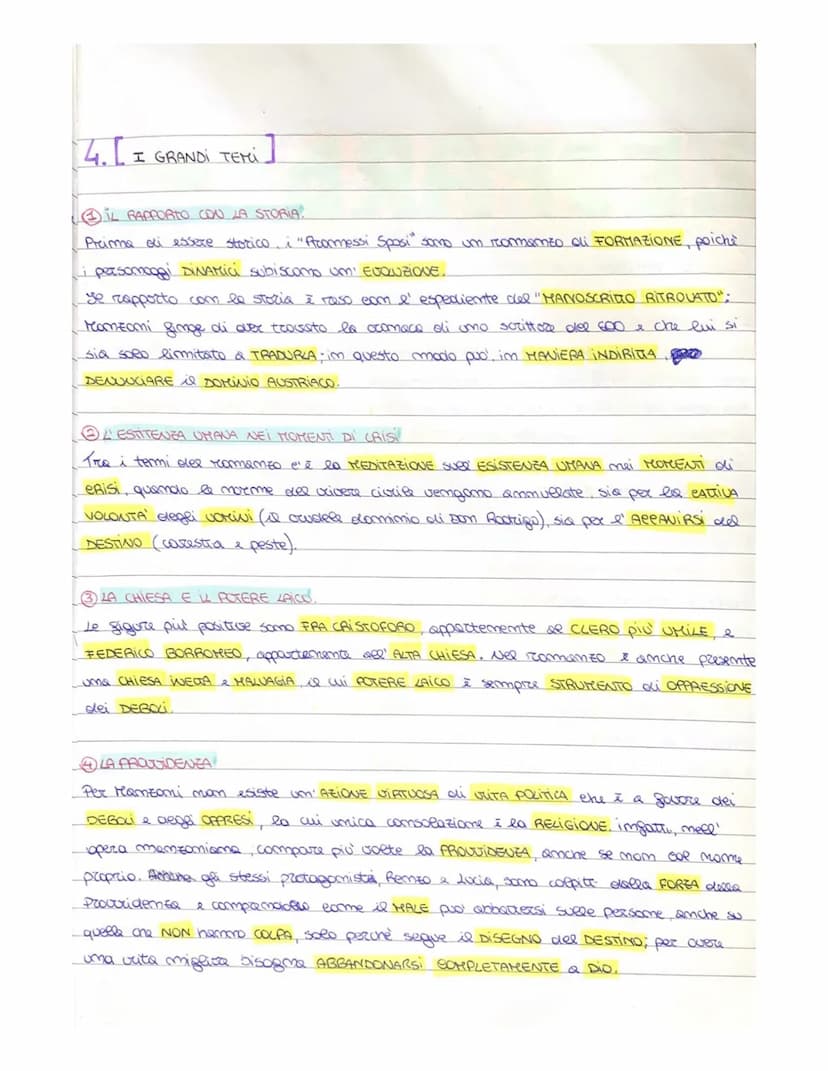 4. [ I GRANDI TEMI ]
① IL RAPPORTO CON LA STORIA.
Prima di essere storico, i "Promessi Sposi" sono un romanzo di FORMAZIONE, poichè
i personaggi DINAMICI subiscono un' EVOLUZIONE.
Il rapporto con la storia è reso con l' espediente del "MANOSCRITTO RITROVATO":
Manzoni finge di aver trovato la cronaca di uno scrittore del 600 e che lui si
sia solo limitato a TRADURLA; in questo modo può, in MANIERA INDIRITTA,
DENUNCIARE il DOMINIO AUSTRIACO.
② L' ESITENZA UMANA NEI MOMENTI DI CRISI
Tra i temi del romanzo c'è la MEDITAZIONE sull' ESISTENZA UMANA nei MOMENTI di
CRISI, quando le norme del vivere civile vengono annullate, sia per la CATTIVA
VOLONTA' degli UOMINI (il crudele dominio di Don Rodrigo), sia per l' ACCANIRSI del
DESTINO (carestia e peste).
③ LA CHIESA E IL POTERE LAICO.
Le figure più positive sono FRA CRISTOFORO, appartenente al CLERO più UMILE, e
FEDERICO BORROMEO, appartenente all' ALTA CHIESA. Nel romanzo è anche presente
una CHIESA INETTA e MALVAGIA, il cui POTERE LAICO è sempre STRUMENTO di OPPRESSIONE
dei DEBOLI.
④ LA PROVVIDENZA
Per Manzoni non esiste un' AZIONE VIRTUOSA di VITA POLITICA che è a favore dei
DEBOLI e degli OPPRESI, la cui unica consolazione è la RELIGIONE. infatti, nell'
opera manzoniana, compare più volte la PROVVIDENZA, anche se non col nome
proprio. gli stessi protagonisti, Renzo e Lucia, sono colpiti dalla FORZA della
Provvidenza e comprendono come il MALE può abbattersi sulle persone, anche su
quelle che NON hanno COLPA, solo perchè segue il DISEGNO del DESTINO; per avere
una vita migliore bisogna ABBANDONARSI COMPLETAMENTE a DIO.